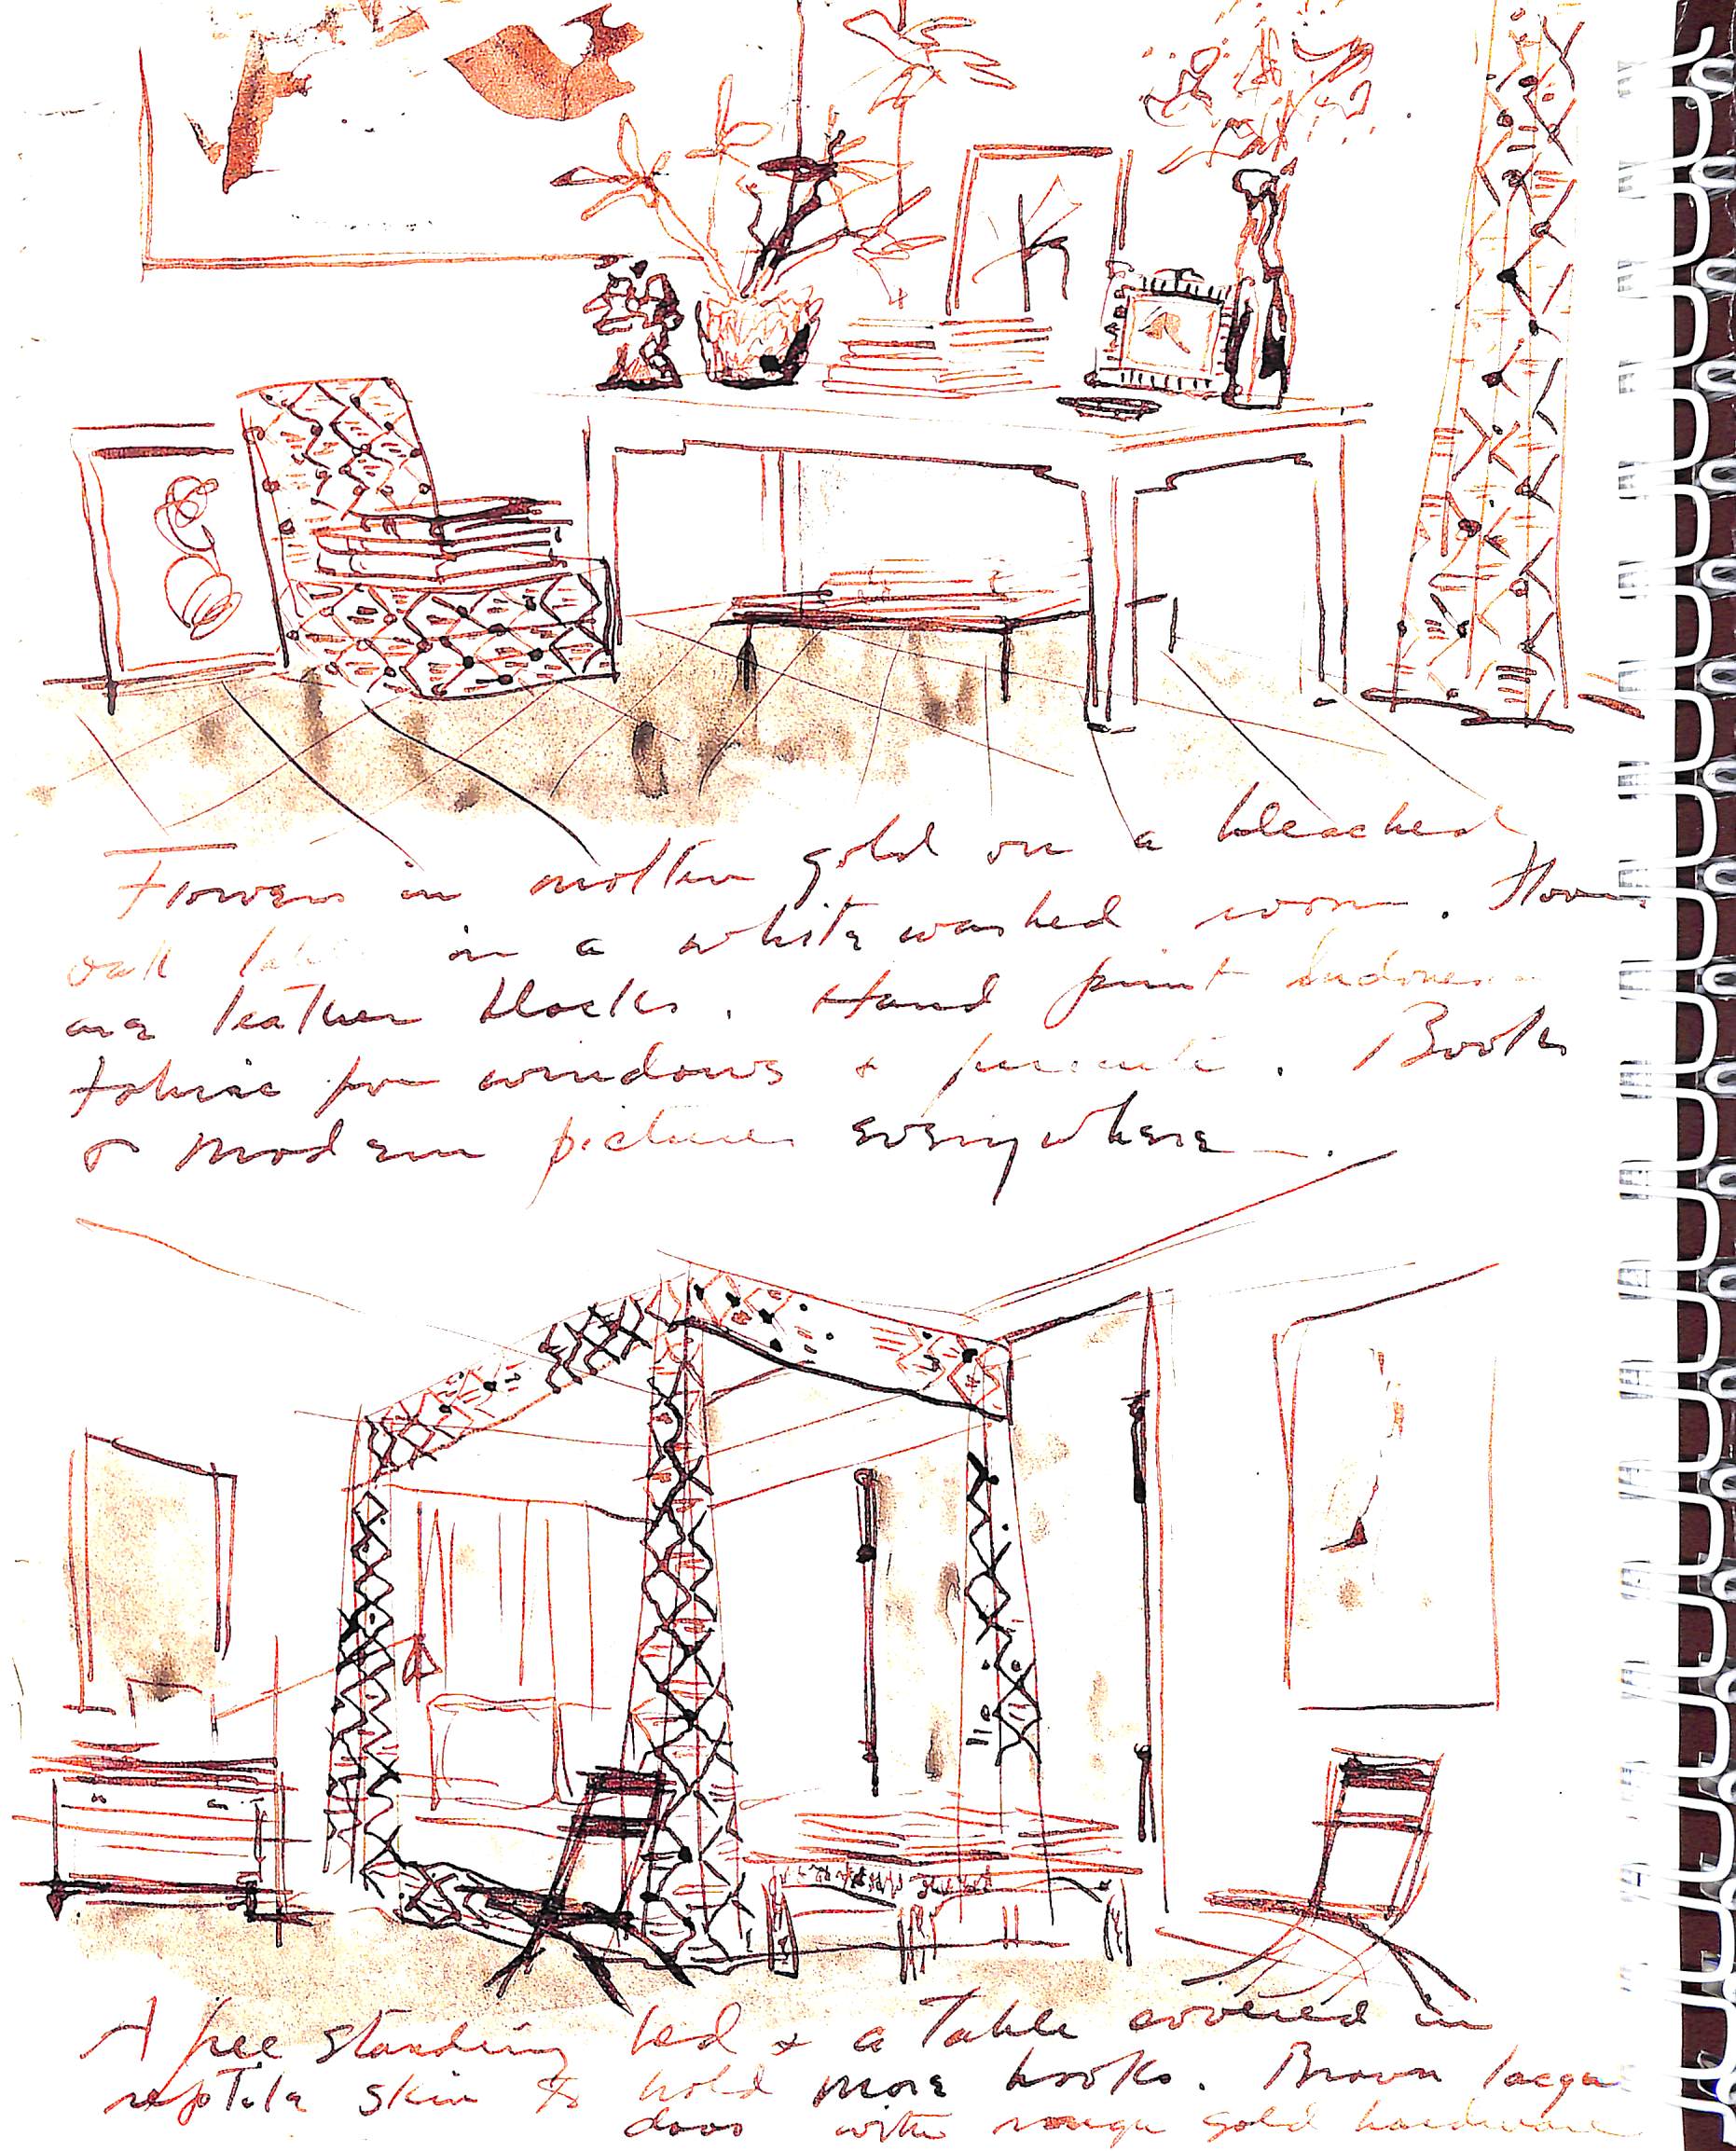 Flowers in molten gold on a bleached
oak table in a white washed room. Floors
are leather blocks. Hand print Indonesian
fabric for windows + . Books
& modern pictures everywhere.
A free standing bed & a Table covered in
reptile skin to hold more books. Brown lacquer
doors with rough gold hardware